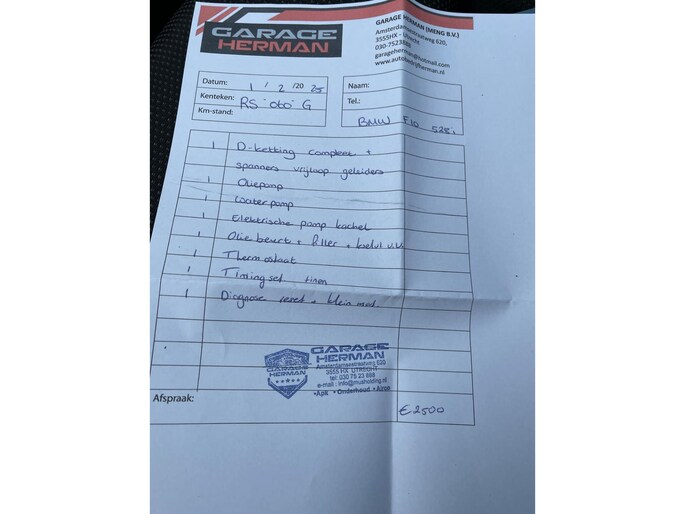 GARAGE
HERMAN
GARAGE HERMAN (MENG B.V.)
Amsterdamsestraatweg 620,
3555HX - Utrecht
030-7523888
garageherman@hotmail.com
www.autobedrijfherman.nl
Datum: 1 / 2 /20 25
Kenteken: RS 060 G
Km-stand:
Naam:
Tel.:
BMW F10 528i
1 D-ketting compleet +
spanners vrijloop geleiders
1 Oliepomp
1 Waterpomp
1 Elektrische pomp kachel
1 Olie beurt + filter +
1 Thermostaat
1 Timing set
1 Diagnose + klein mat.
GARAGE
HERMAN
Amsterdamsestraatweg 620
3555 HX UTRECHT
tel: 030 75 23 888
e-mail: info@musholding.nl
•Apk •Onderhoud •Airco
GARAGE
HERMAN
Afspraak:
€ 2500